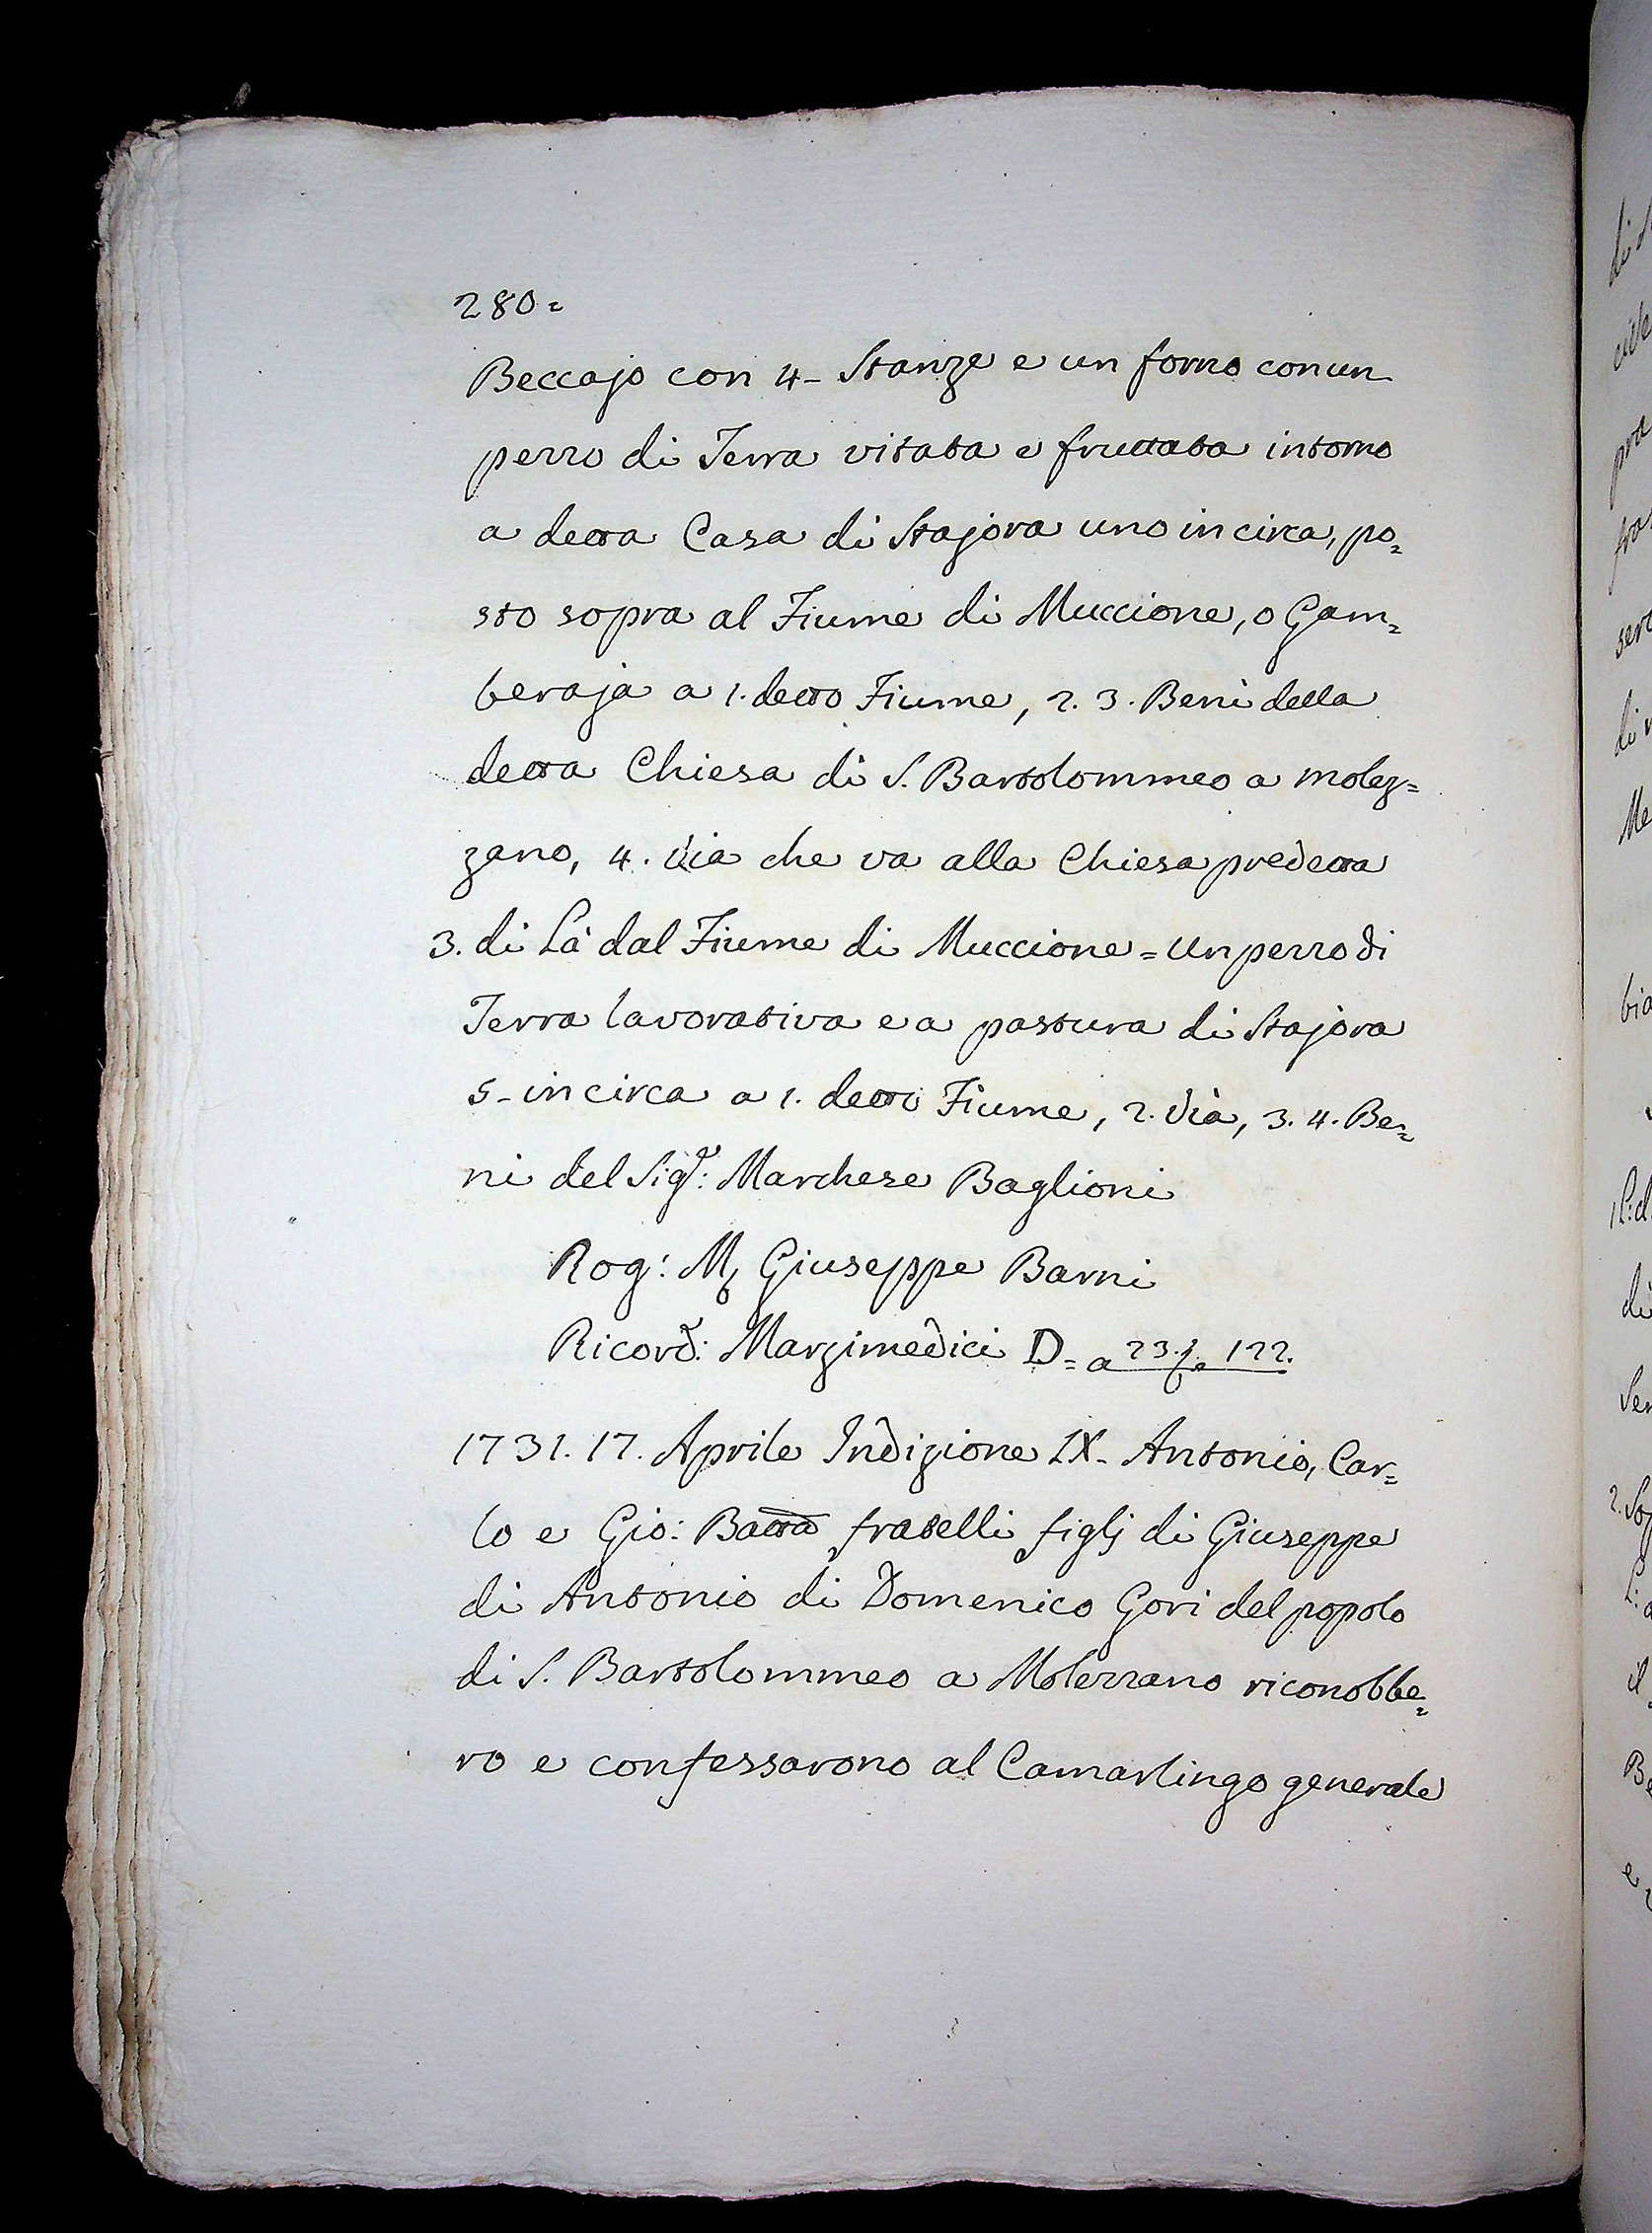 280=
Beccajo con 4- Stanze e un forno con un
pezzo di Terra vitata e fruttata intorno
a detta Casa di Stajora uno in circa, po=
sto sopra al Fiume di Muccione, o Gam=
beraja a 1. detto Fiume, 2. 3. Beni della
detta Chiesa di S. Bartolommeo a molez=
zano, 4. Via che va alla Chiesa predetta
3. di Là dal Fiume di Muccione = Un pezzo di
Terra lavorativa e a pastura di Stajora
5- in circa a 1. detto Fiume, 2. Via, 3. 4. Be=
ni del Sig.r: Marchese Baglioni
Rog: M. Giuseppe Barni
Ricord: Marzimedici D= a 23. fo 122.
1731. 17. Aprile Indizione IX- Antonio, Car=
lo e Gio: Batta fratelli figlj di Giuseppe
di Antonio di Domenico Gori del popolo
di S. Bartolommeo a Molezzano riconobbe=
ro e confessarono al Camarlingo generale